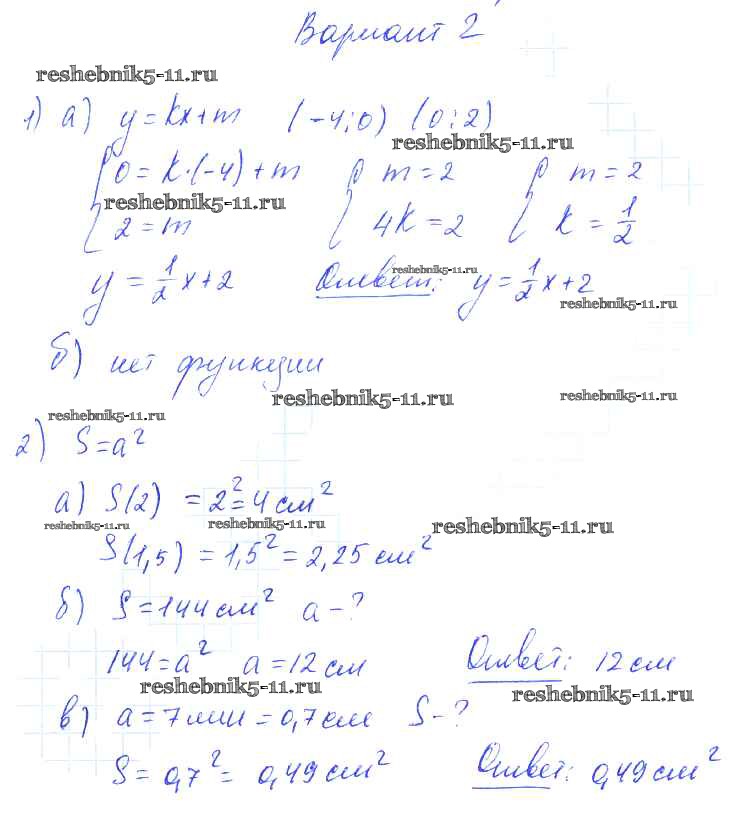 Вариант 2
reshebnik5-11.ru
1) а) y = kx + m (-4; 0) (0; 2)
reshebnik5-11.ru
{ 0 = k·(-4) + m { m = 2 { m = 2
reshebnik5-11.ru
2 = m 4k = 2 k = 1/2
reshebnik5-11.ru
y = 1/2 x + 2 Ответ: y = 1/2 x + 2
reshebnik5-11.ru
б) нет функции
reshebnik5-11.ru
reshebnik5-11.ru
reshebnik5-11.ru
2) S = a²
а) S(2) = 2² = 4 см²
reshebnik5-11.ru
reshebnik5-11.ru
reshebnik5-11.ru
S(1,5) = 1,5² = 2,25 см²
б) S = 144 см² a - ?
144 = a² a = 12 см Ответ: 12 см
reshebnik5-11.ru
reshebnik5-11.ru
в) a = 7 мм = 0,7 см S - ?
S = 0,7² = 0,49 см² Ответ: 0,49 см²